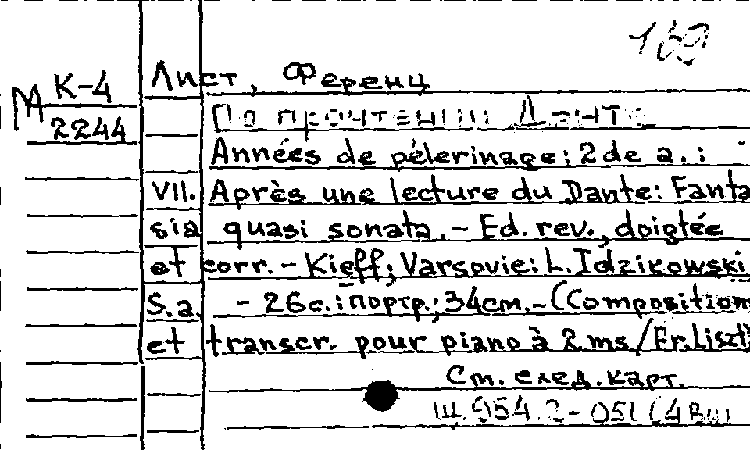 169
М К-4 Лист, Ференц
2244 По прочтении Данте
Années de pélerinage: 2 de a.:
VII. Après une lecture du Dante: Fanta
sia quasi sonata. - Ed. rev., doigtée
et corr. - Kieff; Varsovie: L. Idzikowski
S.a. - 26с.: портр.; 34см. - (Composition
et transcr. pour piano à 2 ms / Fr. Liszt
См. след. карт.
Щ 954.2-051(4Вш